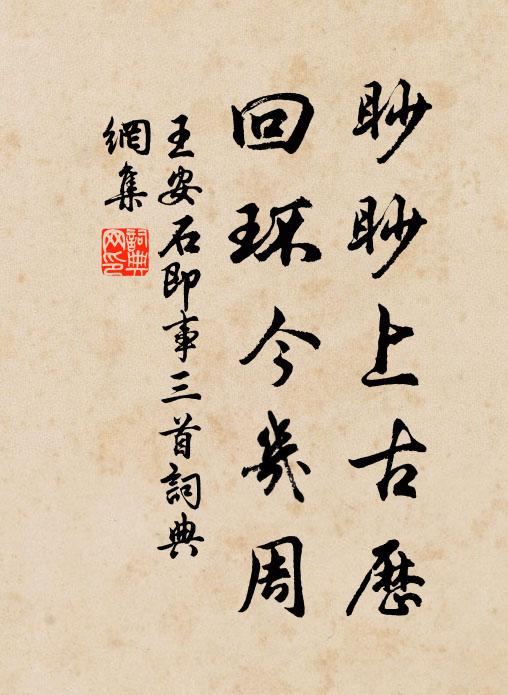 眇眇上古曆
回环今幾周
王安石即事三首詞典
網集
詞典
网印